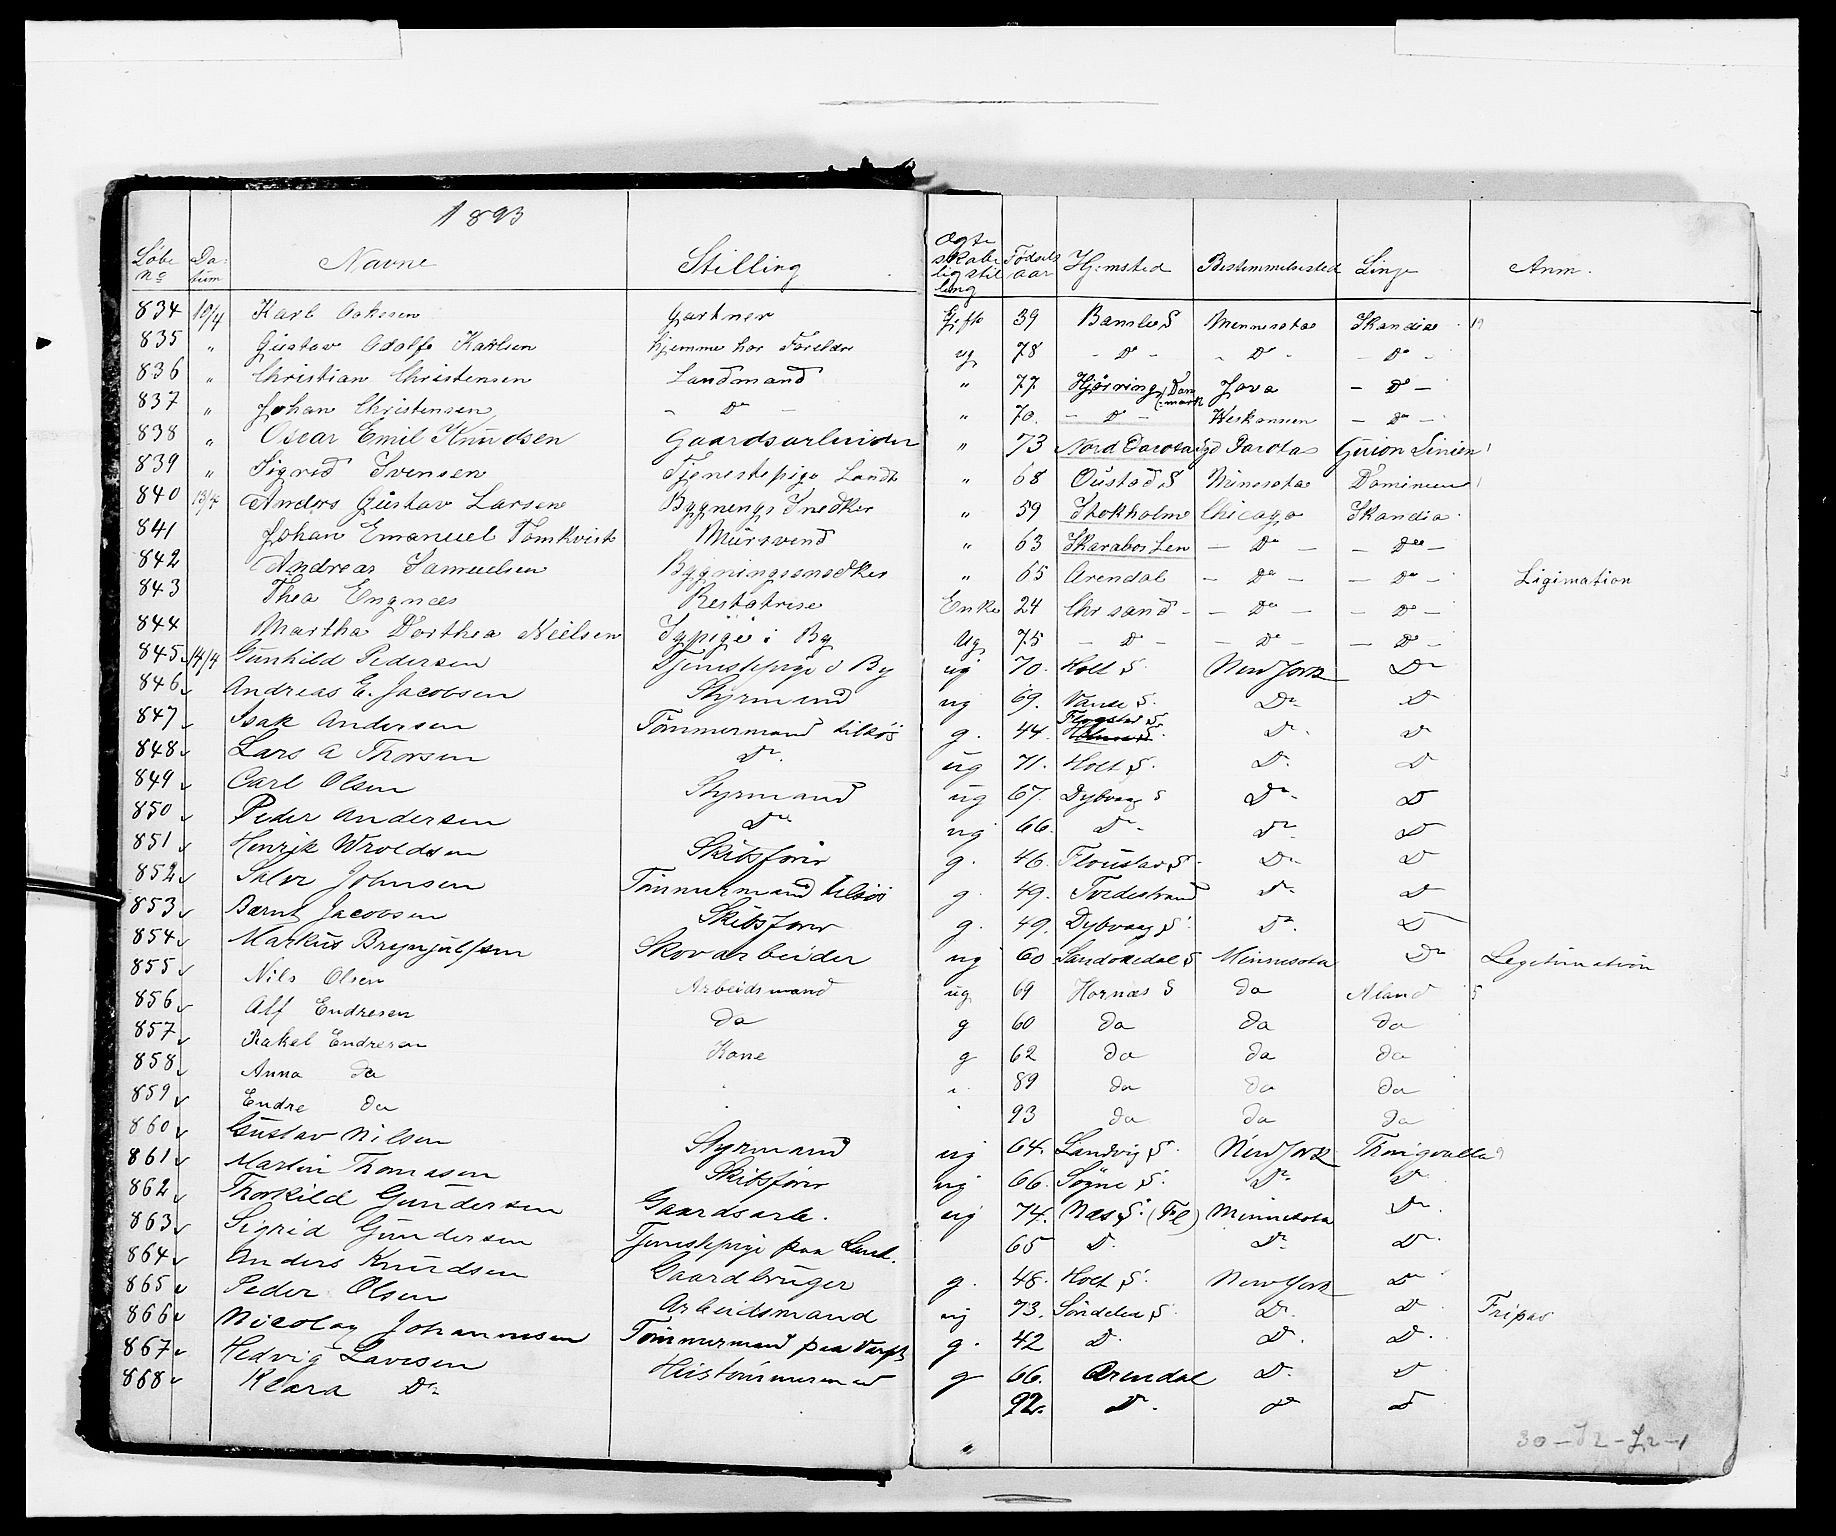 1893
Løbe No Datum Navne Stilling Ægteskabeligstilling Fødselsaar Hjemsted Bestemmelsested Linje Anm.
834 10/4 Karl Aakesen Gartner Gift 39 Bamble S Mennesota Skandia
835 " Gustav Adolf Karlsen hjemme hos Forældre ug 78 - Do - - Do - - Do -
836 " Christian Christensen Landmand " 77 Hjørring (Danmark) Java - Do -
837 " Johan Christensen - Do - " 70. - Do - Weskonsen - Do -
838 " Oscar Emil Knudsen Gaardsarbeider " 73 Nord Dacota Syd Dacota Guion Linien
839 " Sigrid Svensen Tjenestepige Landt " 68 Oustad S Minesota Dominion
840 13/4 Anders Gustav Larsen Bygnings Snedker " 59 Stokholm Chicago Skandia
841 Johan Emanuel Tornkvist Mursvend " 63 Skarabos Len - Do - - Do -
842 Andreas Samuelsen Bygningssnedker " 65 Arendal - Do - - Do - Ligimation
843 Thea Engnæs Restatrise Enke 24 Chrsand - - Do - - Do -
844 Martha Dorthea Nielsen Sypige i By Ug 75 - Do - - Do - - Do -
845 14/4 Gunhild Pedersen Tjenestepige i By ug 70. Holt S. New York Do
846 Andreas E. Jacobsen Styrmand ug 69. Vanse S. Do Do
847 Isak Andersen Tømmermand tilsøs g. 44. Flosstad S. Do Do
848 Lars A Thorsen Do. ug 71. Holt S. Do. Do
849 Carl Olsen Styrmand ug 67. Dybvaag S Do. Do
850 Peder Andersen Do ug 66. Do. Do. Do
851 Henrik Wroldsen Skibsfører g. 46. Floustad S. Do Do
852 Salve Johnsen Tømmermand tilsøs g. 49. Tvedestrand Do Do
853 Bernt Jacobsen Skibsfører g. 49. Dybvaag S. Do. Do
854 Markus Brynjulfsen Skovarbeider ug 60 Sandøkedal S Minnesota Do Legitimation
855 Nils Olsen Arbeidsmand ug 69 Hornæs S do Aland
856 Alf Endresen do g 60 do do do
857 Rakel Endresen Kone g 62 do do do
858 Anna do 89 do do do
859 Endre do 93 do do do
860 Gustav Nilsen Styrmand ug 64. Landvig S. New York Thingvalla
861 Martin Thomasen Skibsfører ug 66. Søgne S. Do. Do.
862 Thorkild Gundersen Gaardsarb. ug 74. Næs S. (Fl) Minnesota Do.
863 Sigrid Gundersen Tjenestepige paa Land. 65 D. Do. Do.
864 Anders Knudsen Gaardbruger g. 48. Holt S. New York Do
865 Peder Olsen Arbeidsmand ug 73. Søndeled S. Do. Do Fripas
866 Nicolay Johannesen Tømmermand paa Værft g. 42 D. Do. Do.
867 Hedvig Lavesen Hustømmermand g 66. Arendal Do. Do
868 Klara Do 92. D. Do Do
30-J2-